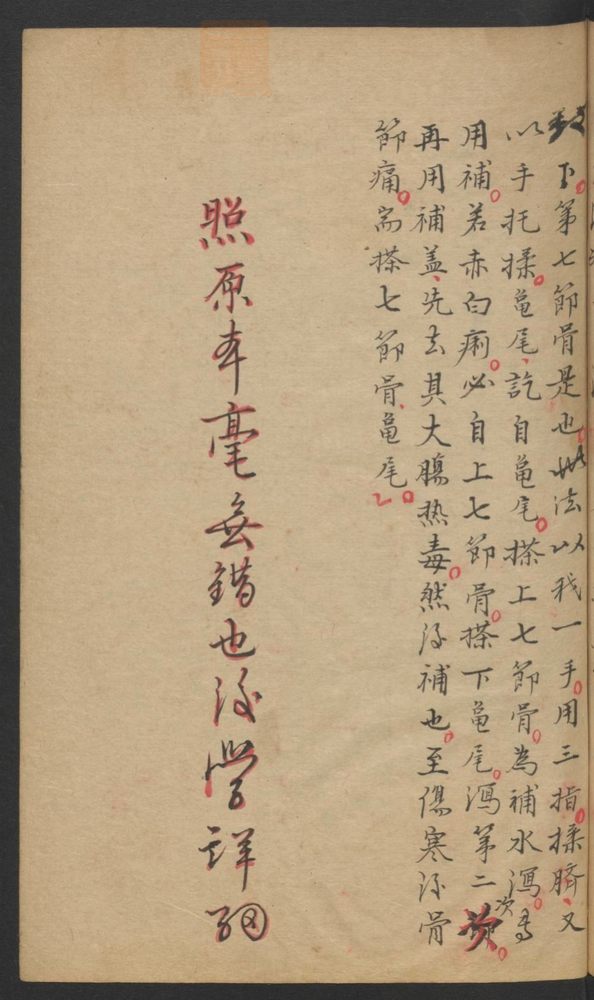 下第七節骨是也此法以我一手用三指揉臍又
以手托揉龜尾訖自龜尾搽上七節骨為補水瀉專
用補若赤白痢必自上七節骨搽下龜尾瀉第二次
再用補盖先去其大腸热毒然後補也至傷寒後骨
節痛耑搽七節骨龜尾
照原本毫無錯也後學詳細